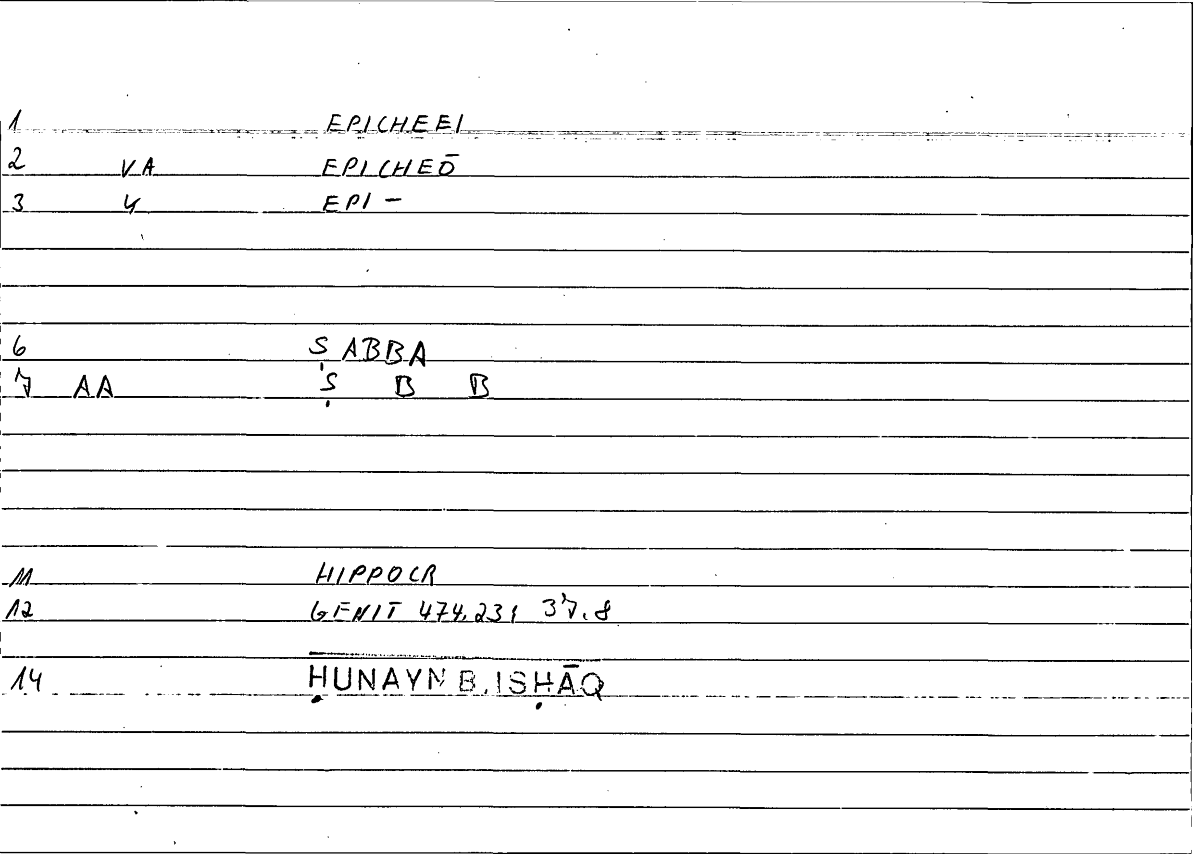 1 EPICHEEI
2 VA EPICHEŌ
3 4 EPI -
6 Ṣ ABBA
7 AA Ṣ B B
11 HIPPOCR
12 GENIT 474.23; 37.8
14 ḤUNAYN B. ISḤĀQ